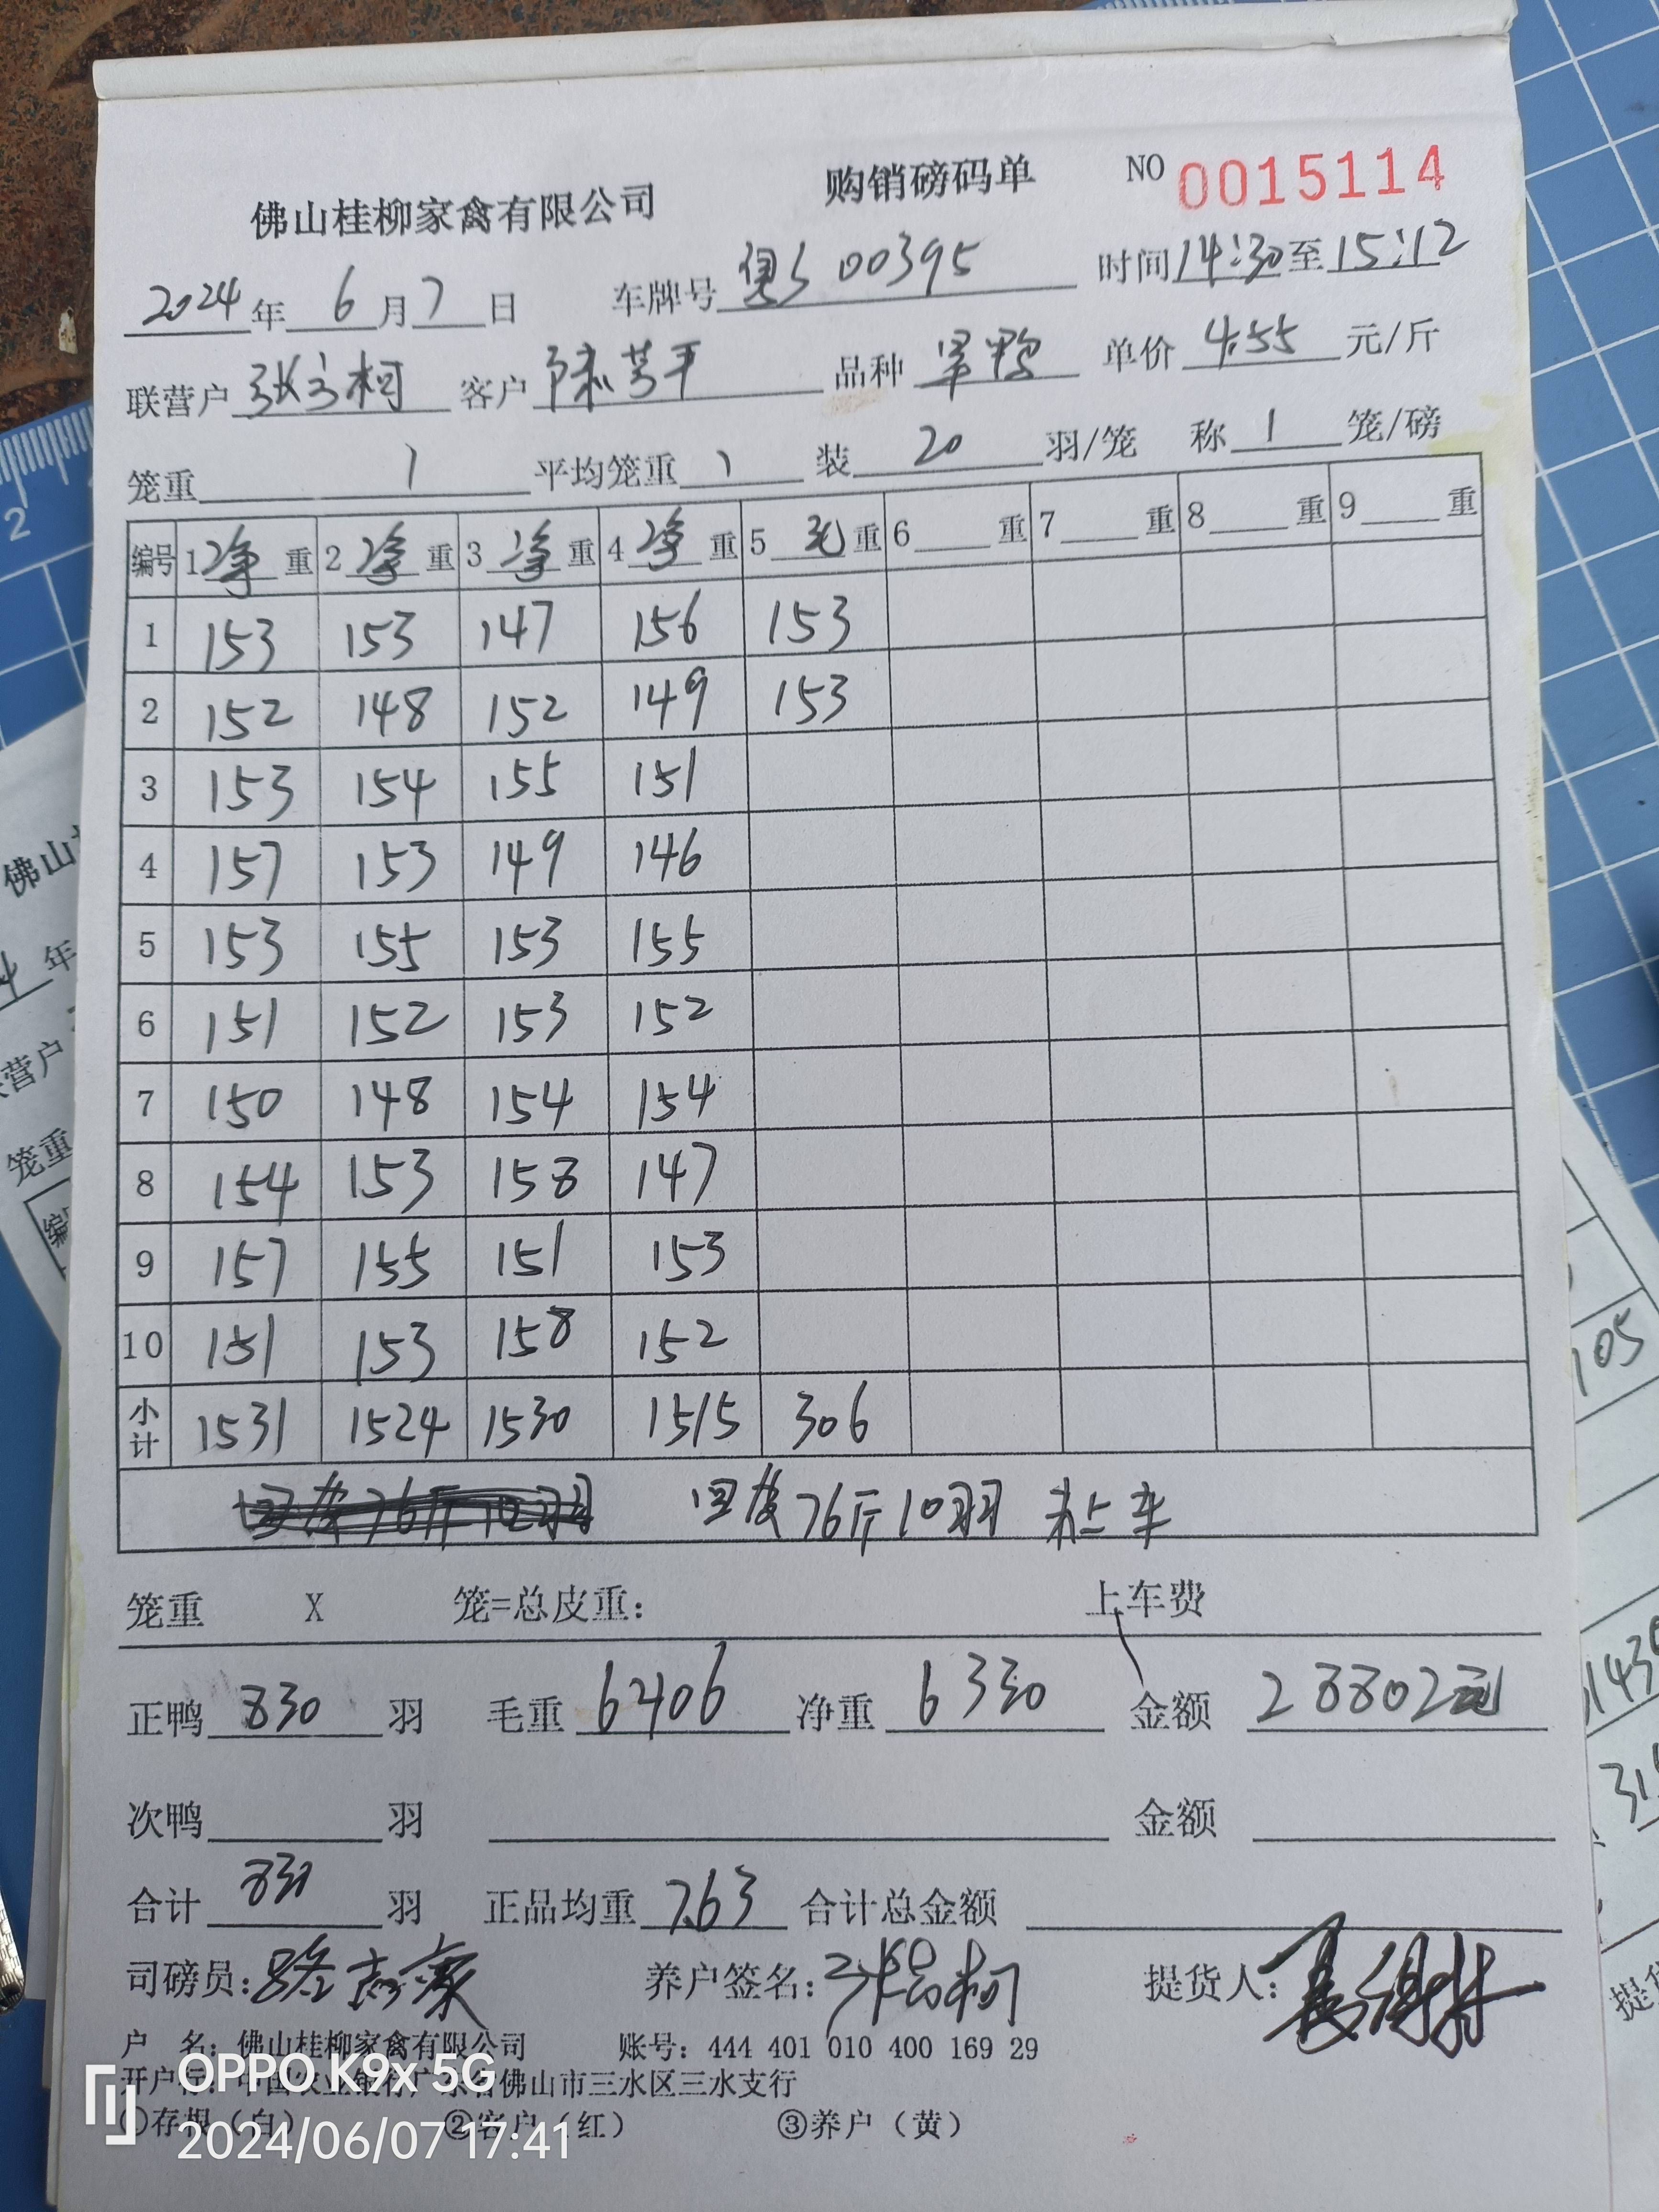 佛山桂柳家禽有限公司 购销磅码单 NO 0015114
2024年 6月7日 车牌号 粤S 00395 时间14:30至15:12
联营户 张 柯 客户 陈芳平 品种 旱鸭 单价 4.55 元/斤
笼重 1 平均笼重 1 装 20 羽/笼 称 1 笼/磅
编号 1净重 2净重 3净重 4净重 5毛重 6 重 7 重 8 重 9 重
1 153 153 147 156 153
2 152 148 152 149 153
3 153 154 155 151
4 157 153 149 146
5 153 155 153 155
6 151 152 153 152
7 150 148 154 154
8 154 153 158 147
9 157 155 151 153
10 151 153 158 152
小计 1531 1524 1530 1515 306
回皮76斤10羽 未上车
笼重 X 笼=总皮重: 上车费
正鸭 830 羽 毛重 6406 净重 6330 金额 28802元
次鸭 羽 金额
合计 830 羽 正品均重 7.63 合计总金额
司磅员: 养户签名: 提货人:
户 名: 佛山桂柳家禽有限公司 账号: 444 401 010 400 169 29
开户行: 中国农业银行广东省佛山市三水区三水支行
①存根(白) ②客户(红) ③养户(黄)
OPPO K9x 5G
2024/06/07 17:41
佛山
年
营户
笼重
105
提货